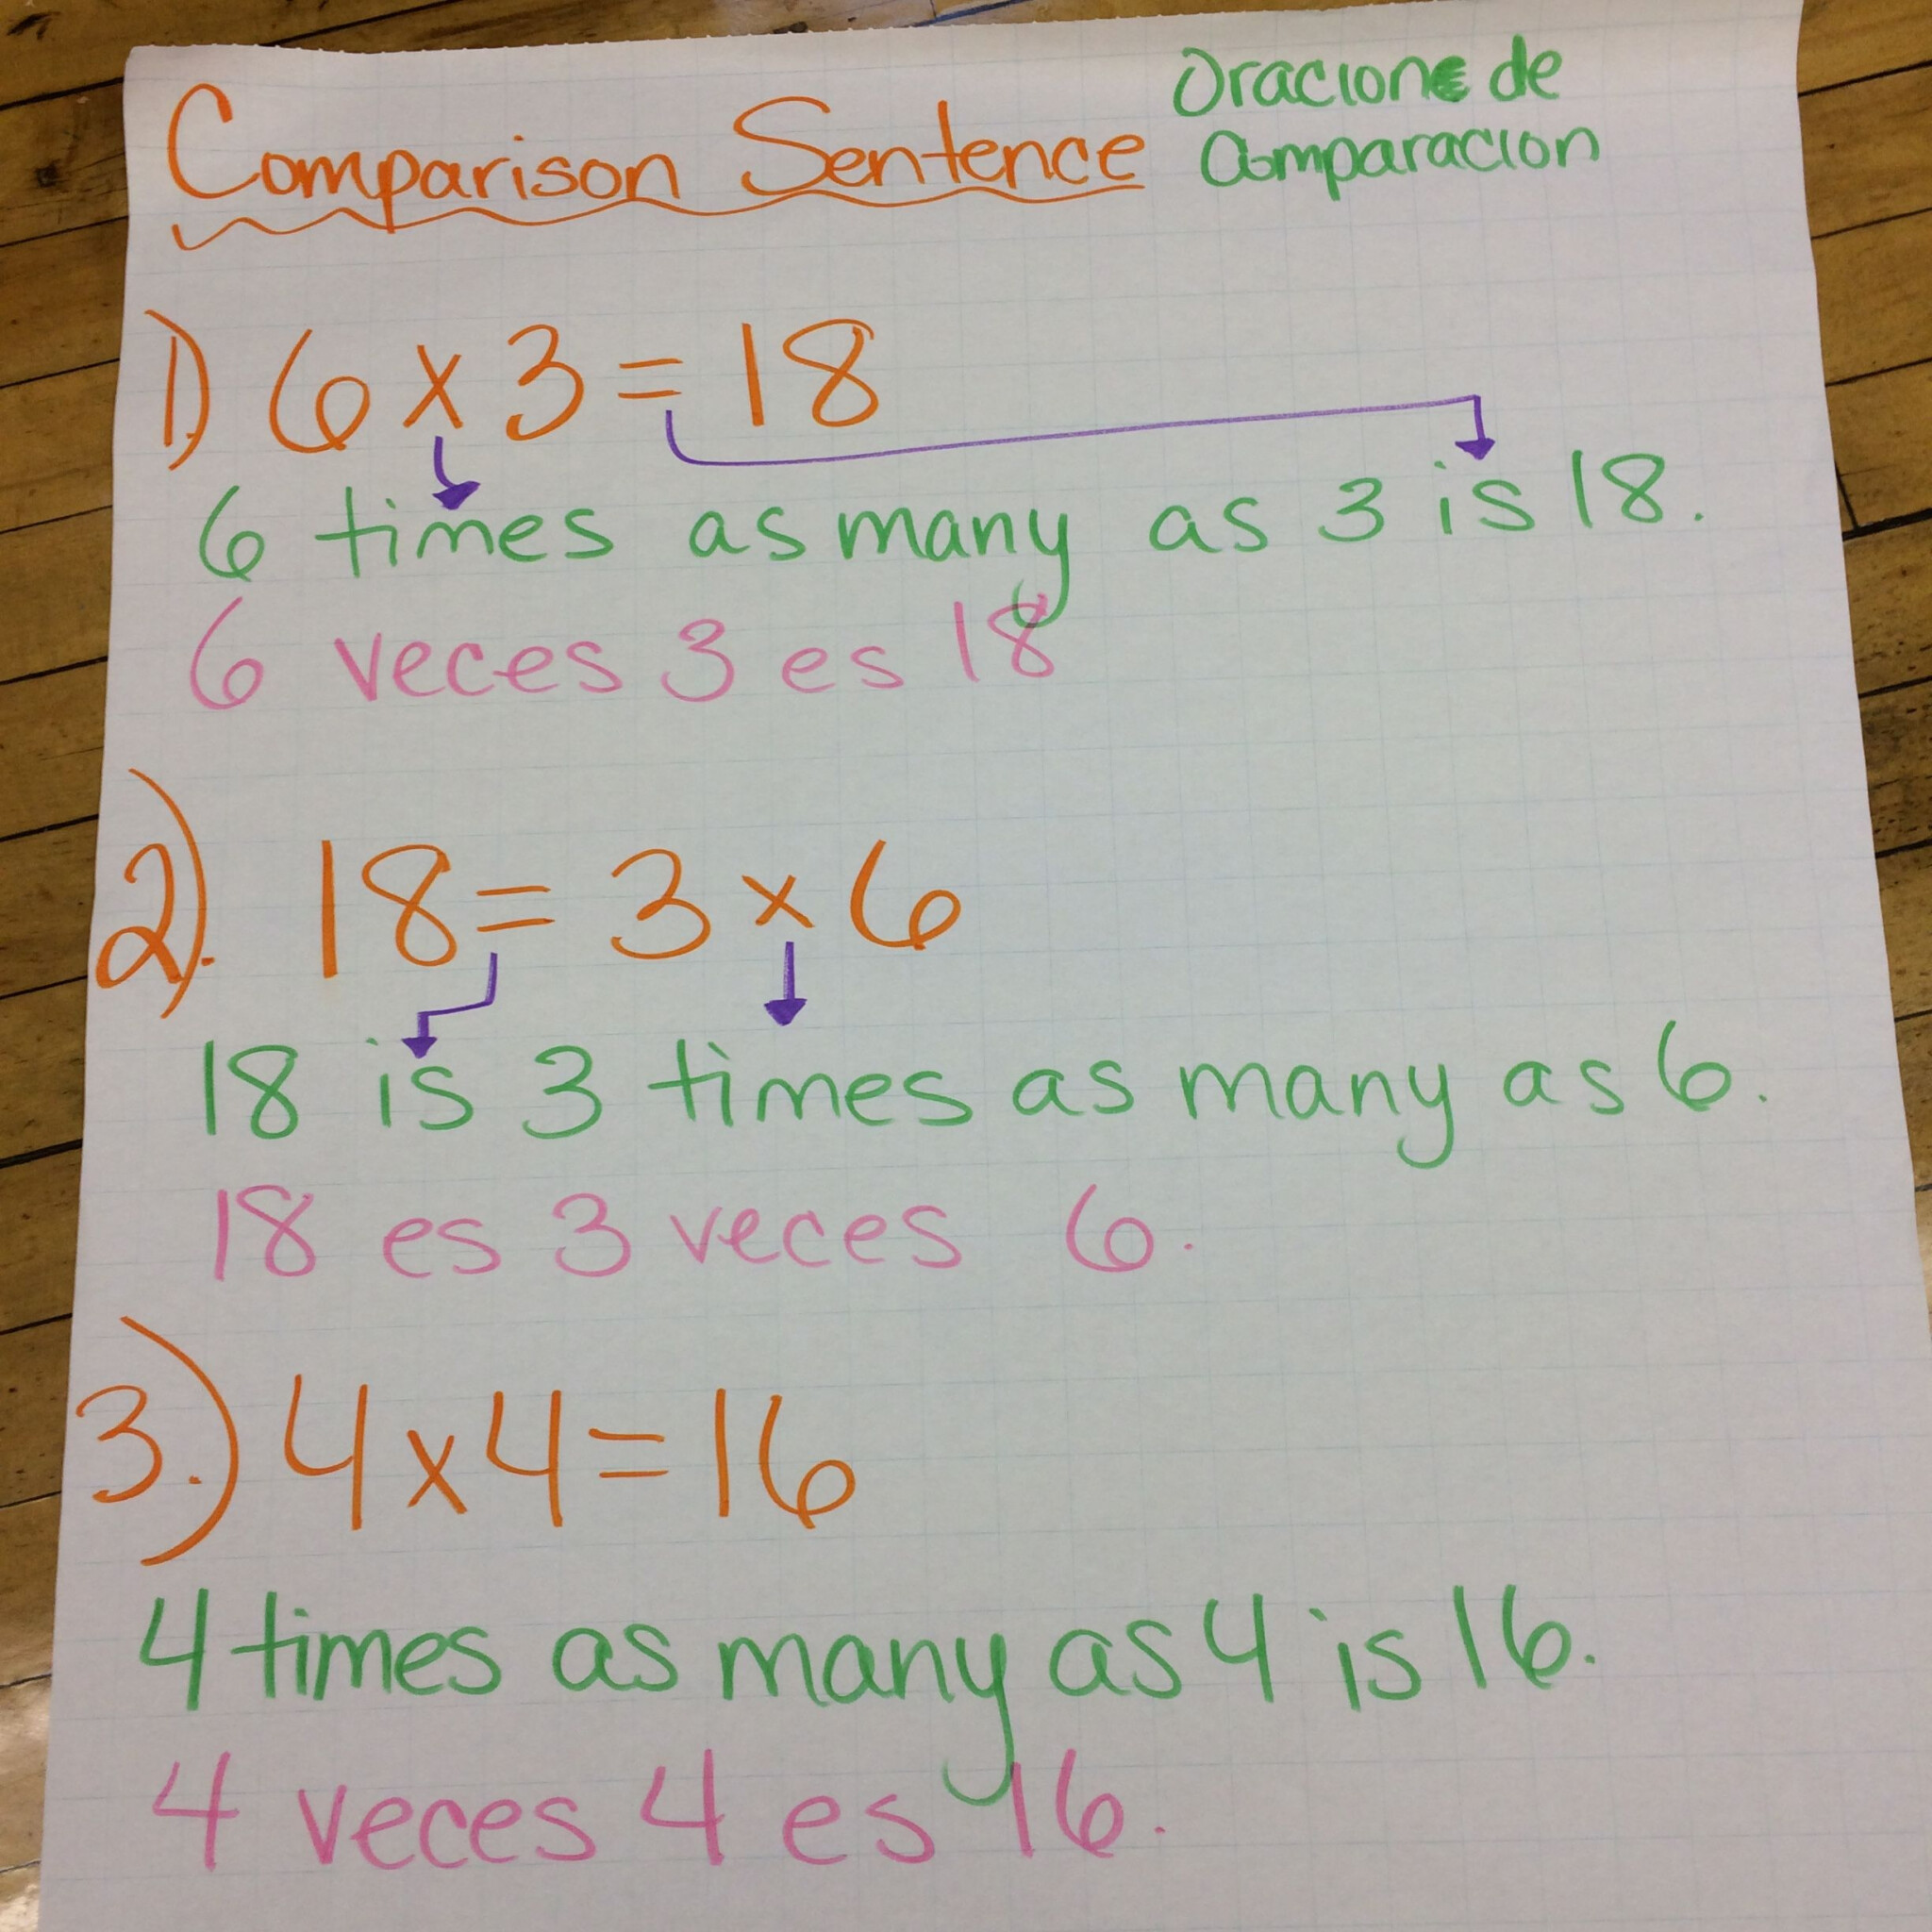 Comparison Sentence
Oracione de
Comparacion
1.) 6 x 3 = 18
6 times as many as 3 is 18.
6 veces 3 es 18
2). 18 = 3 x 6
18 is 3 times as many as 6.
18 es 3 veces 6.
3.) 4 x 4 = 16
4 times as many as 4 is 16.
4 veces 4 es 16.